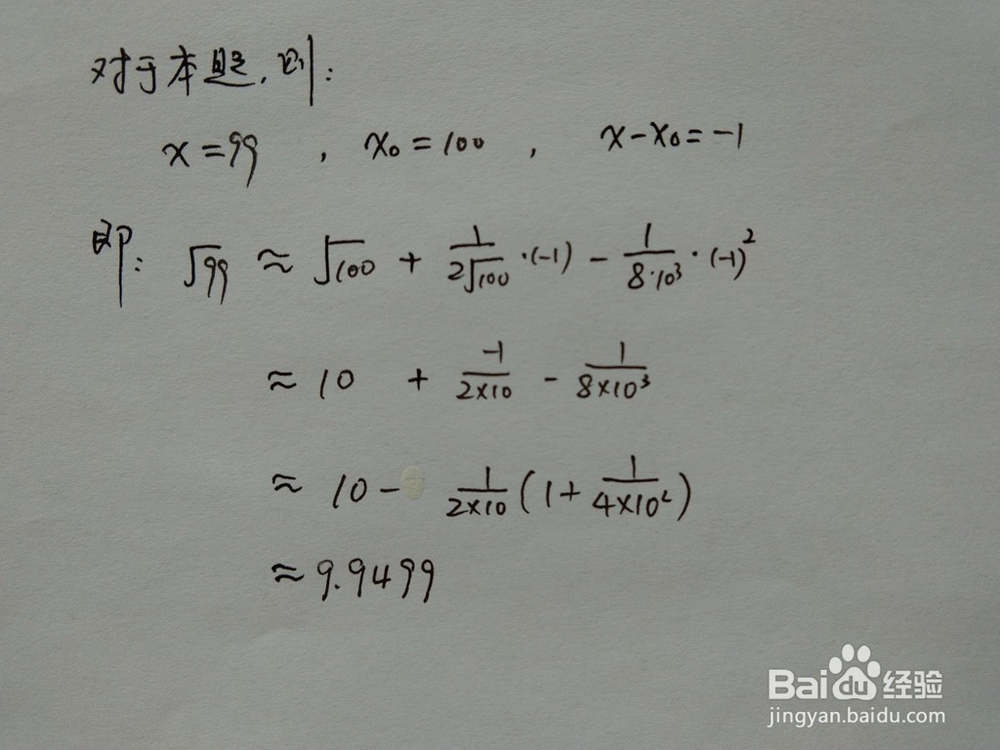 对于本题,则:
x=99 , x₀=100 , x-x₀=-1
即: √99 ≈ √100 + 1/(2√100)·(-1) - 1/(8·10³)·(-1)²
≈ 10 + -1/(2×10) - 1/(8×10³)
≈ 10 - 1/(2×10) (1+ 1/(4×10²))
≈ 9.9499
Baidu经验
jingyan.baidu.com